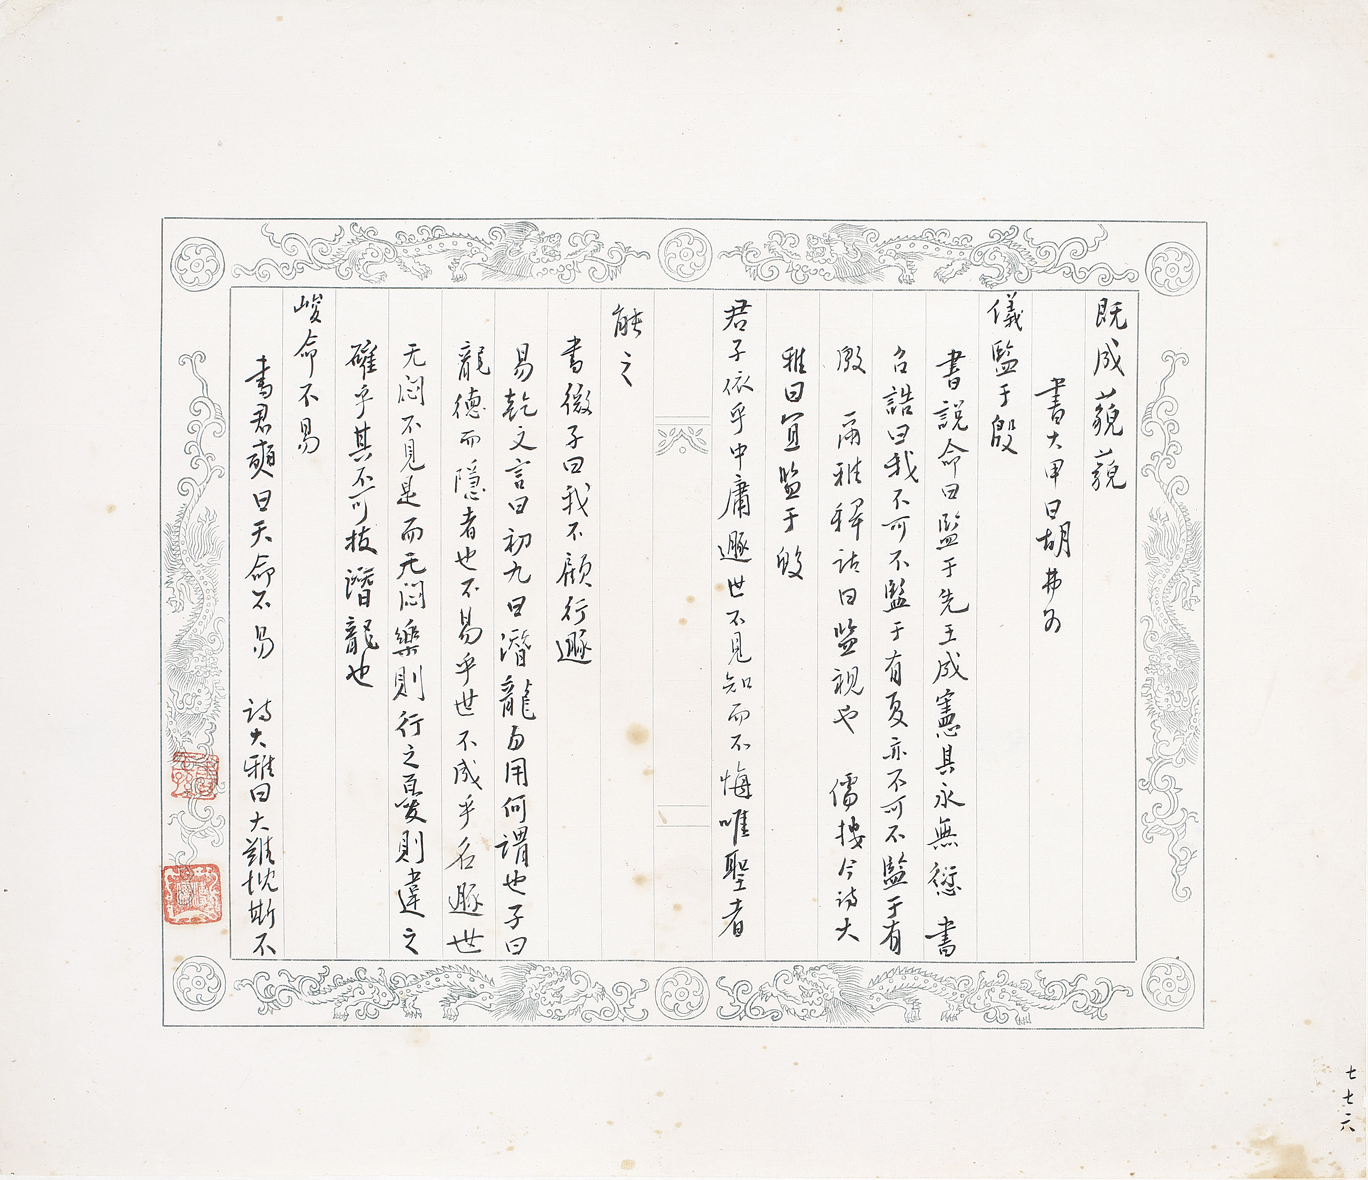 既成藐藐
書大甲曰胡弗为
儀監于殷
書說命曰監于先王成憲其永無愆 書
召誥曰我不可不監于有夏亦不可不監于有
殷 爾雅釋詁曰監視也 儒今詩大
雅曰宜監于殷
君子依乎中庸遯世不見知而不悔唯聖者
能之
書微子曰我不顧行遯
易乾文言曰初九曰潛龍勿用何謂也子曰
龍德而隱者也不易乎世不成乎名遯世
无悶不見是而无悶樂則行之憂則違之
確乎其不可拔潛龍也
峻命不易
書君奭曰天命不易 詩大雅曰天難忱斯不
七七六